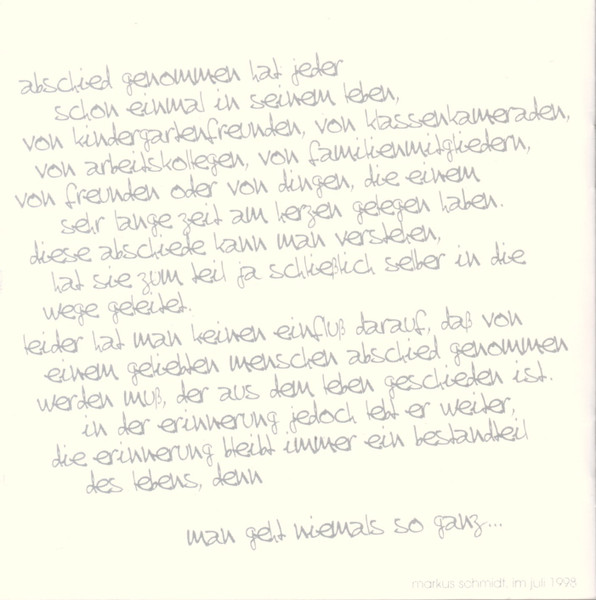 abschied genommen hat jeder
schon einmal in seinem leben,
von kindergartenfreunden, von klassenkameraden,
von arbeitskollegen, von familienmitgliedern,
von freunden oder von dingen, die einem
sehr lange zeit am herzen gelegen haben.
diese abschiede kann man verstehen,
hat sie zum teil ja schließlich selber in die
wege geleitet.
leider hat man keinen einfluß darauf, daß von
einem geliebten menschen abschied genommen
werden muß, der aus dem leben geschieden ist.
in der erinnerung jedoch lebt er weiter,
die erinnerung bleibt immer ein bestandteil
des lebens, denn
man geht niemals so ganz...
markus schmidt, im juli 1998